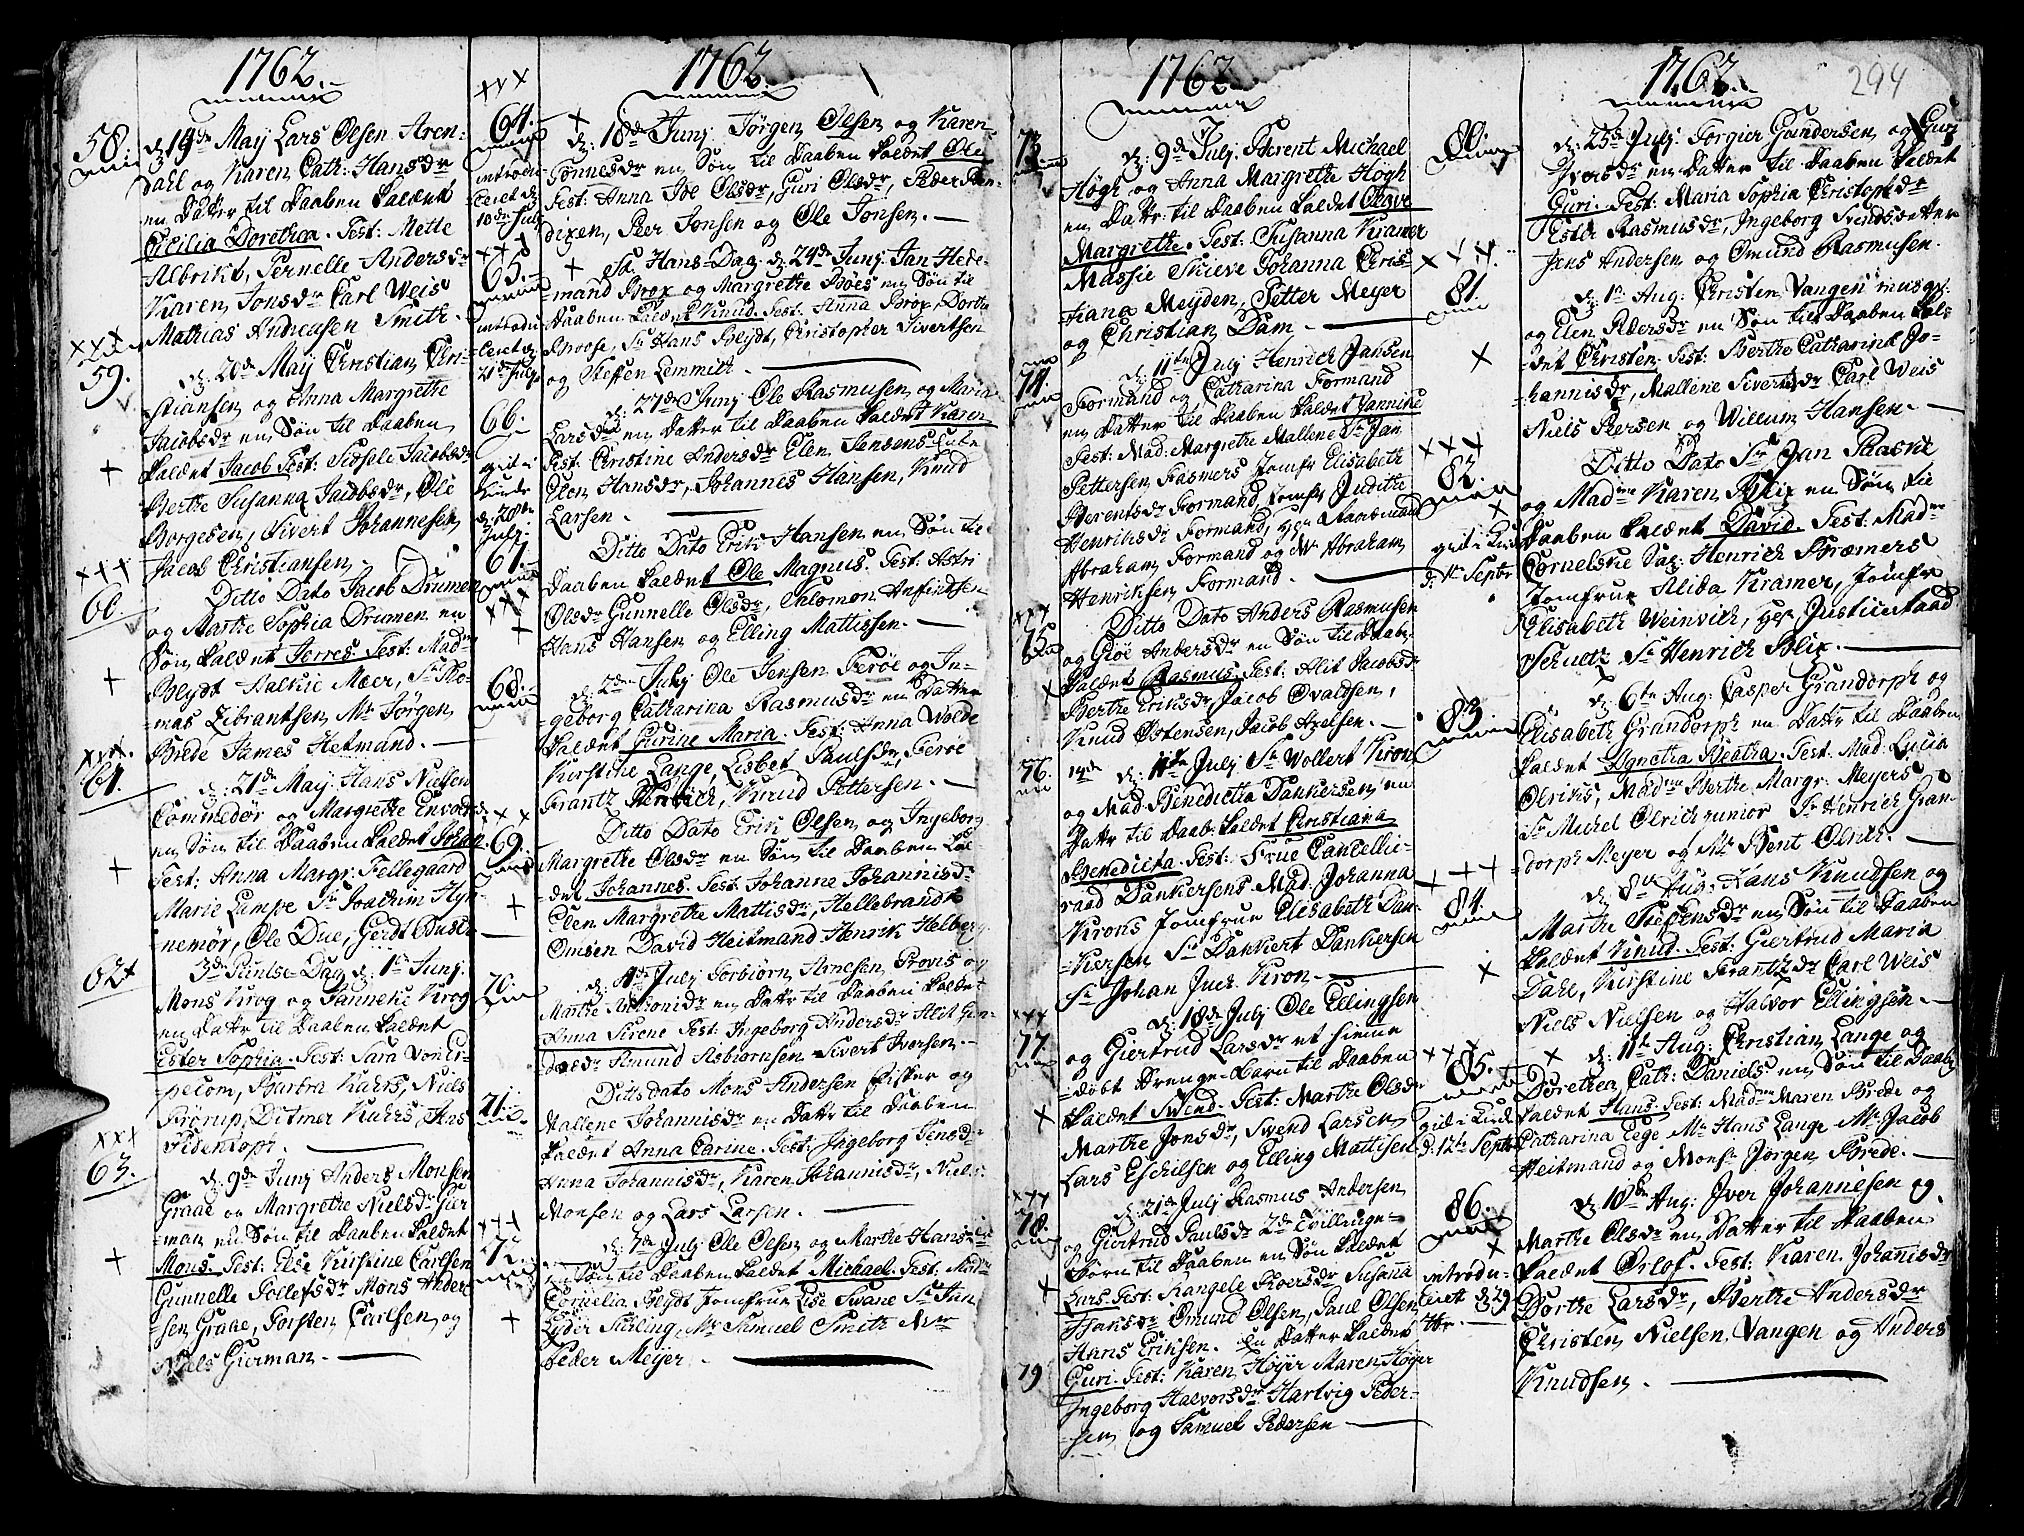 1762.
58.
d: 19de May Lars Olsen Aren-
dahl og Karen Cath: Hansdr
en Datter til Daaben kaldet
Cecilia Dorethea. Test: Mette
Albrikt, Pernelle Andersdr
Karen Jonsdr Carl Weis
Mathias Andreusen Smith.
xxx
59.
d: 20de May Christian Chri-
stiansen og Anna Margrethe
Jacobsdr en Søn til Daaben
kaldet Jacob Test: Sidsele Jacobsdr
Berthe Susanna Jacobsdr, Ole
Borgesen, Sivert Johannesen,
Jacob Christiansen.
xxx
60.
Ditto Dato Jacob Drumen
og Marthe Sophia Drumen en
Søn kaldet Jorres. Test: Mad:
Blydt Halkie Meer, Sr Tho-
-mas Zibrantsen, Mr Jørgen
Brede James Heitmand.
xxx.
61.
d: 21de May Hans Nielsen
Commedør og Margrethe
en Søn til Daaben kaldet Johan
Test: Anna Margr: Fellegaard
Marie Lampe Sr Joachim Hÿn-
nemør, Ole Due, Gerdt
62
3de Pintse-Dag d: 1te Junj.
Mons Krog og Janneke Krog
en Datter til Daaben kaldet
Ester Sophia. Test: Sara von Er-
pecom, Bartra Kahrs, Niels
Brørup, Ditmer Kahrs, Jens
Fidentoph.
xxx
63.
d: 9de Junj Anders Monsen
Graae og Margrethe Nielsdr Gier
man en Søn til Daaben kaldet
Mons. Test: Else Kirstine Carlsen
Gunnelle Tollefsdr Mons Ander
sen Graae, Torsten Carlsen og
Niels Gierman.
1762
xxx
64.
introdu-
ceret d:
10de Julj
d: 18de Junj Jørgen Olsen og Karen
Tønnesdr en Søn til Daaben kaldet Ole
Test: Anna Soe Olsdr, Guri Olsdr, Peder
dixen, Peer Jonsen og Ole Jonsen.
xxx
65.
introdu-
ceret d:
21de Julj
St. Hans-Dag d: 24de Junj Jan Hede-
mand Brox og Margrethe Boes en Søn til
Daaben kaldet Knud. Test: Anna Brox, Dorthe
Roose, Sr Hans Blydt, Christopher Sivertsen
og Steffen Lemmich.
66.
gik i
Kirke
d: 28de
Julj.
d: 27de Junj Ole Rasmusen og Maria
Larsdr en Datter til Daaben kaldet Karen
Test: Christine Andersdr Elen Jensens
Elen Hansdr, Johannes Hansen, Knud
Larsen.
67.
xxx
Ditto Dato Erik Hansen en Søn til
Daaben kaldet Ole Magnus. Test: Astri
Olsdr Gunnelle Olsdr, Salomon Anfindsen
Hans Hansen og Elling Mattissen.
68.
d: 2den Julj Ole Jensen Ferøe og In-
geborg Catharina Rasmusdr en Datter
kaldet Gurine Maria. Test: Anna Wolde
Kirstine Lange, Lisbet Paulsdr, Ferøe
Frantz Henrich, Knud Pettersen.
xx
69.
Ditto Dato Erik Olsen og Ingeborg
Margrethe Olsdr en Søn til Daaben kal-
-det Johannes. Test: Johanne Johannisdr
Elen Margrethe Mattisdr, Hellebrandt
Omsen David Heitmand Henrik Helberg
70.
d: 4de Julj Torbiørn Arnesen Provis og
Marthe Antonidr en Datter til Daaben kaldet
Anna Sirene Test: Ingeborg Andersdr Alit Gun-
Amund Asbiørnsen Sivert Iversen.
71.
Ditto dato Mons Andersen Fisker og
Mallene Johannisdr en Datter til Daaben
kaldet Anna Carine. Test: Ingeborg Jensdr
Anna Johannisdr, Karen Johannisdr, Niels
Monsen og Lars Larsen.
xxx
72.
d: 7de Julj Ole Olsen og Marthe Hansdr
en Søn til Daaben kaldet Michael. Test: Madr
Cornelia Blydt Jomfrue Lise Svane Sr Jun
Lyder Suhling, Mr Samuel Smith Mr
Peder Meÿer.
1762
73
d: 9de Julj. Berent Michael
Høgh og Anna Margrethe Høgh
en Datter til Daaben kaldet Chave
Margrethe. Test: Susanna Kramer
Massie Schieve Johanna Chris-
-tiana Meÿden, Petter Meÿer
og Christian Dam.
74.
d: 11te Julj Henrich Jansen
Formand og Catharina Formand
en Datter til Daaben kaldet Jannike
Test: Mad: Margrethe Mallene Sr Jan
Pettersen Fasmers Jomfr Elisabeth
Berentsdr Formand, Jomfr Judithe
Henriksdr Formand, Hr
Abraham Formand og Mr Abraham
Henriksen Formand.
xxx
75
Ditto Dato Anders Rasmusen
og Giøe Andersdr en Søn til Daaben
kaldet Rasmus. Test: Alit Jacobsdr
Berthe Eriksdr, Jacob Ovaldsen,
Knud Ostensen, Jacob Axelsen.
76.
14de
d: 11te Julj Sr Wollert Kron
og Mad: Benedicta Dankersen, en
Datter til Daab: kaldet Christiana
Benedicta. Test: Frue Cancellie-
raad Dankersens Mad: Johanna
Krons Jomfrue Elisabeth Dan-
-kersen Sr Dankert Dankersen
Sr Johan Juch Kron.
xxx
77
d: 18de Julj Ole Ellingsen
og Giertrud Larsdr et hieme
døbt Drenge-Barn til Daaben
kaldet Swend. Test: Marthe Olsdr
Marthe Jonsdr, Svend Larsen
Lars Eschilsen og Elling Mattisen
xxx
78.
d: 21de Julj Rasmus Andersen
og Giertrud Paulsdr 2de Tvillinge-
Børn til Daaben en Søn kaldet
Lars. Test: Rangele Peersdr Susana
Hansdr Omund Olsen, Paul Olsen
Hans Eriksen. En Datter kaldet
79
Guri. Test: Karen Høyer Maren Høÿer
Ingeborg Halvorsdr Hartvig Peder-
-sen og Samuel Pedersen
1762.
294
80.
d: 25de Julj Torgier Gundersen og Guri
Iversdr en Datter til Daaben kaldet
Guri. Test: Maria Sophia Christophdr
Ester Rasmusdr, Ingeborg Svends datter
Jens Andersen og Omund Rasmusen.
xxx
81.
d: 1te Aug: Christen Vangen
og Elen Pedersdr en Søn til Daaben kal-
det Christen. Test: Berthe Catharina Jo-
hannisdr, Mallene Sivertsdr Carl Weis
Niels Persen og Willum Hansen.
xxx
82.
gik i Kirk
d: 1te Septbr
Ditto Dato Sr Jan Paaske
og Madme Karen Blix en Søn til
Daaben kaldet David. Test: Madme
Cornelske Sal: Henrich Kræmers
Jomfrue Alida Kramer, Jomfr
Elisabeth Weinvich, Hr Justiceraad
Schultz Sr Henrich Blix.
83.
d: 6te Aug: Casper Grandorph og
Elisabeth Grandorph en Datter til Daaben
kaldet Agnetha Beatha. Test: Mad: Lucia
Olriks, Madme Berthe Margr: Meÿers
Sr Michel Olrich junior Sr Henrich Gran-
dorph Meÿer og Mr Bent Olrich.
xxx
84.
d: 8de Aug: Hans Knudsen og
Marthe Steffensdr en Søn til Daaben
kaldet Knud. Test: Giertrud Maria
Dahl, Kirstine Frantzdr Carl Weis
Niels Nielsen og Halvor Ellingsen.
xxx
85.
gik i Kirke
d: 12te Septbr
d: 11te Aug: Christian Lange og
Dorethea Cath: Daniels en Søn til Daab
kaldet Hans. Test: Madme Maren Brede og
Catharina Eege Mr Hans Lange Mr Jacob
Heitmand og Monsr Jørgen Brede.
86.
introdu-
ceret d: 29
d: 18de Aug: Iver Johannesen og
Marthe Olsdr en Datter til Daaben
kaldet Orlof. Test: Karen Johanisdr
Dorthe Larsdr, Berthe Andersdr
Christen Nielsen Vangen og Anders
Knudsen.